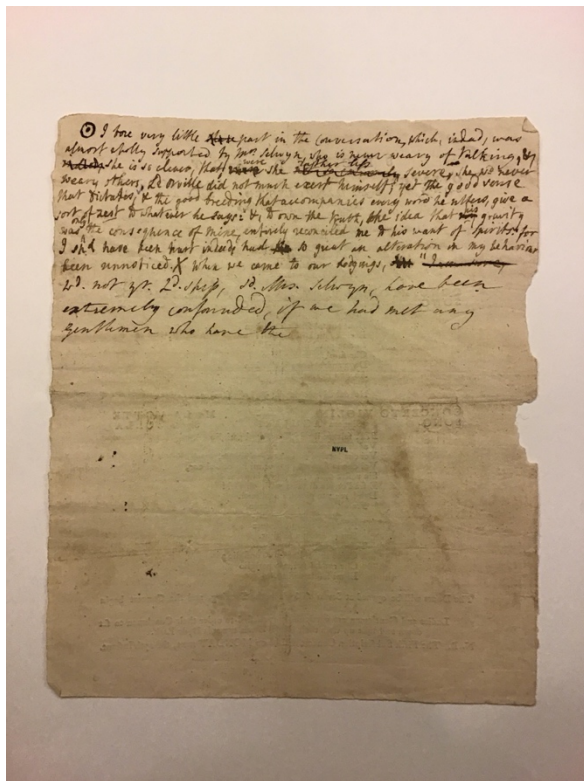 I bore very little part in the conversation, which, indeed, was
almost wholly supported by Mrs. Selwyn, who is never weary of talking, &
she is so clever, that were she rather less severe, she wd. never
weary others, Ld. Orville did not much exert himself, yet the good sense
that dictates, & the good breeding that accompanies every word he utters, give a
sort of zest to whatever he says: &, to own the truth, the idea that his gravity
was only the consequence of mine, entirely reconciled me to his want of spirits: for
I shd. have been hurt indeed had so great an alteration in my behaviour
been unnoticed. X When we came to our lodgings, "
wd. not yr. Ldship, sd. Mrs. Selwyn, have been
extremely confounded, if we had met any
gentlemen who have the
CONCERTO VIOLIN
SONG
NYPL